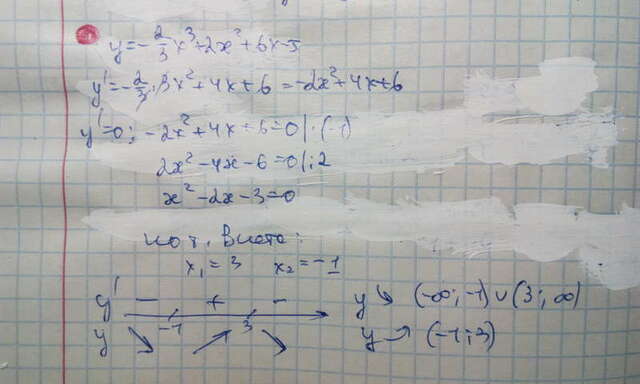 y=-2/3x³+2x²+6x-5
y'=-2/3·3x²+4x+6=-2x²+4x+6
y'=0; -2x²+4x+6=0|·(-1)
2x²-4x-6=0|:2
x²-2x-3=0
по т. Виета:
x₁=3 x₂=-1
y' - + - y ↘ (-∞;-1)∪(3;∞)
-1 3
y ↘ ↗ ↘ y ↗ (-1;3)